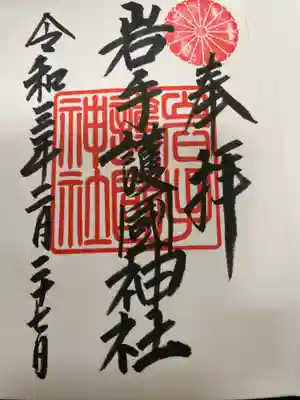 奉拝
岩手護國神社
令和三年二月二十七日
岩手護國神社